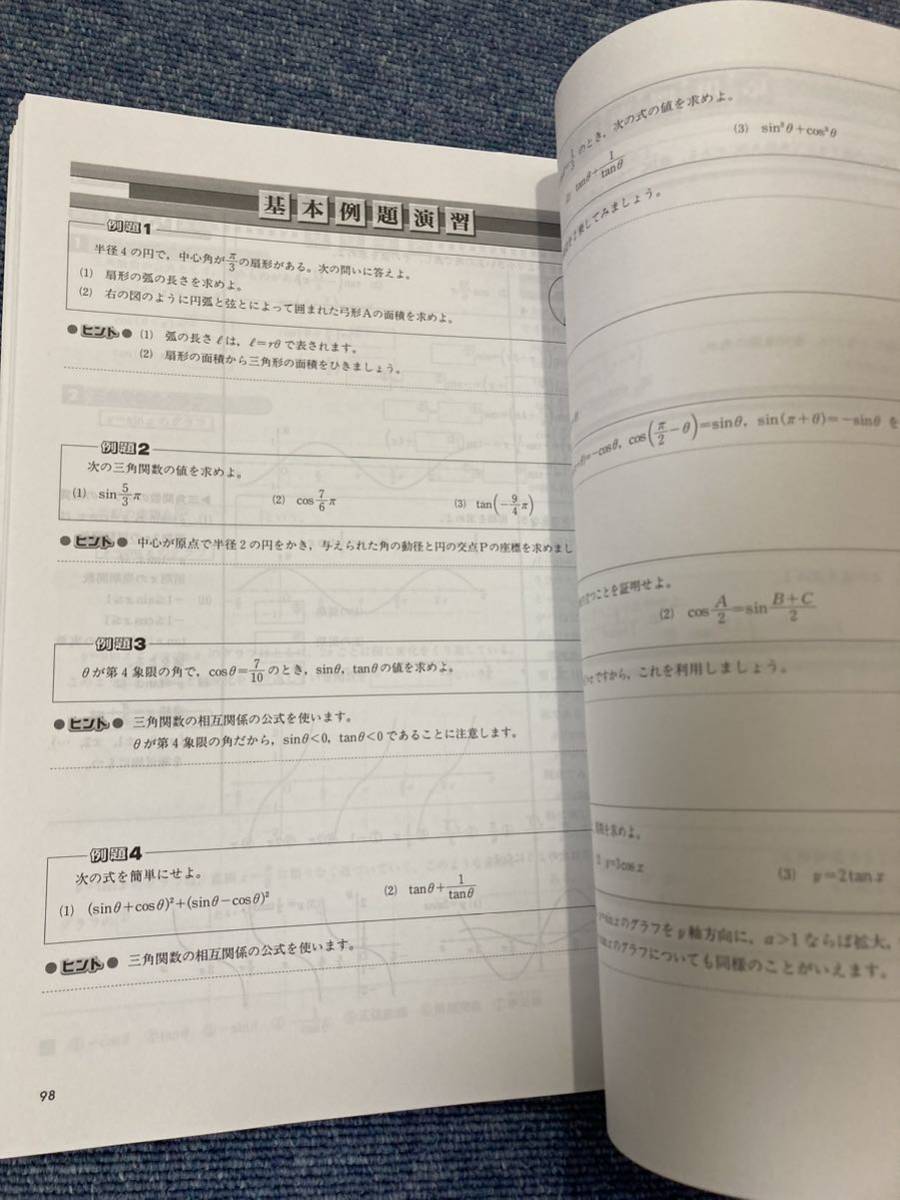 基本例題演習
例題1
半径4の円で，中心角がπ/3の扇形がある。次の問いに答えよ。
(1) 扇形の弧の長さを求めよ。
(2) 右の図のように円弧と弦とによって囲まれた弓形Aの面積を求めよ。
●ヒント● (1) 弧の長さℓは，ℓ=rθで表されます。
(2) 扇形の面積から三角形の面積をひきましょう。
例題2
次の三角関数の値を求めよ。
(1) sin 5/3 π (2) cos 7/6 π (3) tan(−9/4 π)
●ヒント● 中心が原点で半径2の円をかき，与えられた角の動径と円の交点Pの座標を求めまし
例題3
θが第4象限の角で，cosθ=7/10のとき，sinθ，tanθの値を求めよ。
●ヒント● 三角関数の相互関係の公式を使います。
θが第4象限の角だから，sinθ<0，tanθ<0であることに注意します。
例題4
次の式を簡単にせよ。
(1) (sinθ+cosθ)²+(sinθ−cosθ)² (2) tanθ+1/tanθ
●ヒント● 三角関数の相互関係の公式を使います。
98
1/3のとき，次の式の値を求めよ。
tanθ+1/tanθ (3) sin³θ+cos³θ
乗してみましょう。
=−cosθ，cos(π/2−θ)=sinθ，sin(π+θ)=−sinθ を
つことを証明せよ。
(2) cos A/2=sin B+C/2
ですから，これを利用しましょう。
を求めよ。
y=3cosx (3) y=2tanx
のグラフをy軸方向に，a>1ならば拡大，
のグラフについても同様のことがいえます。